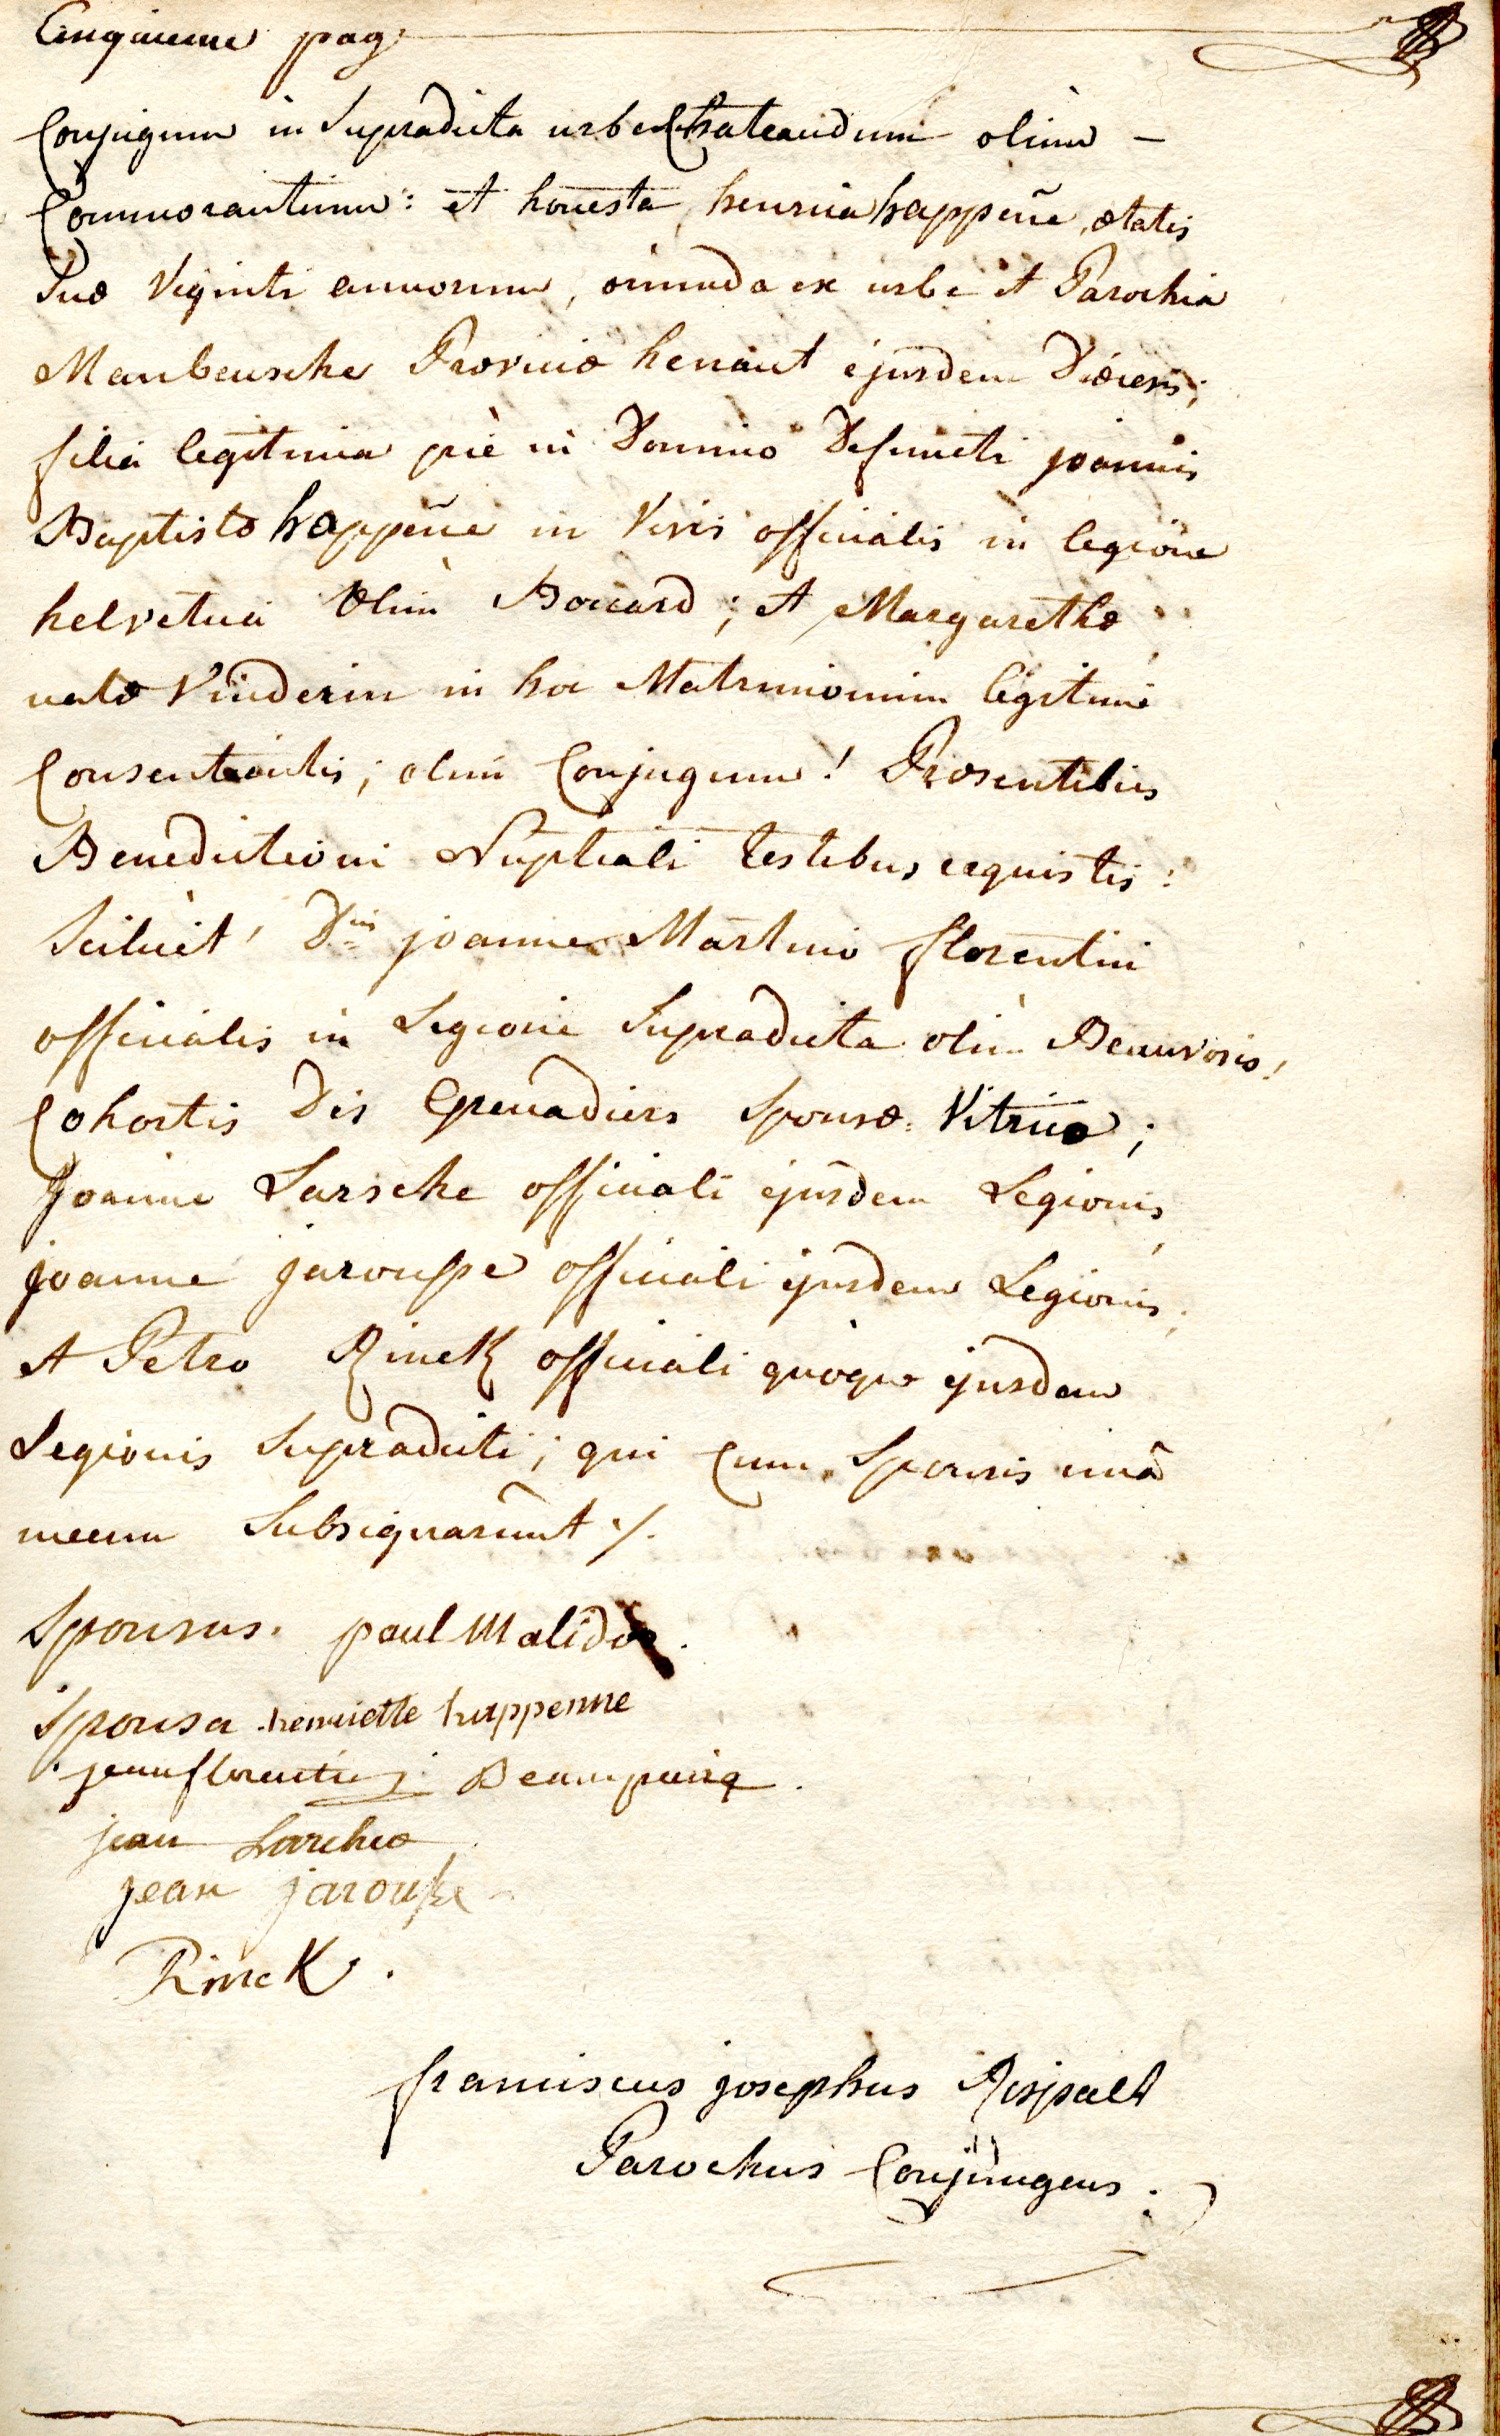 Cinquieme pag:
Conjugum in Supradicta urbe Chateaudum olim –
Commorantium: et honesta henrica happeñe, ætatis
Suæ Viginti annorum, oriunda ex urbe et Parochia
Maubeusche Provinciæ henaut ejusdem Diœcesis;
filia legitima piè in Domino Defuncti joannis
Baptistæ happeñe in Vivis officialis in legione
helvetica olim Boccard; et Margarethæ
natæ Vinderin in hoc Matrimonium legitimè
Consentientis; olim Conjugum! Præsentibus
Benedictioni Nuptiali testibus requistis:
Scilicèt, Dnis joanne Martino florentin
officialis in Legione Supradicta olim Beauvoris!
Cohortis Des Grenadiers Sponsæ Vitrico;
Joanne Larsche officiali ejusdem Legionis,
joanne jarousse officiali ejusdem Legionis;
et Petro RincK officiali quoque ejusdem
Legionis Supradicti; qui Cum Sponsis unâ
mecum Subsignarunt ./.
Sponsus. paul Malidor.
Sponsa. henriette happenne
jean florentin Beaupuing.
jean Larcheo
jean jarousse
RincK.
franciscus josephus Rispalt
Parochus Conjungens.